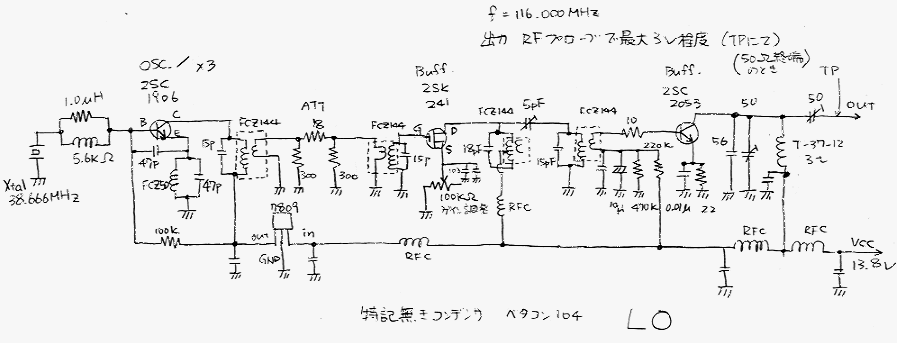 f = 116.000MHz
出力 RFプローブで最大3V程度 (TPにて)
(50Ω終端のとき)
OSC. / x3
2SC
1906
Buff.
2SK
241
Buff.
2SC
2053
TP
1.0μH
B
C
E
FCZ144
ATT
18
FCZ144
G
D
S
FCZ144
5pF
FCZ144
10
50
50
OUT
5.6KΩ
47p
15p
300
300
15p
18p
15pF
220K
56
T-37-12
3t
Xtal
38.666MHz
FCZ50
47p
103
100KΩ
ゲイン調整
RFC
10μ
470K
0.01μ
22
100K
7809
OUT
in
GND
RFC
RFC
RFC
VCC
13.8V
特記無きコンデンサ ペタコン104
LO